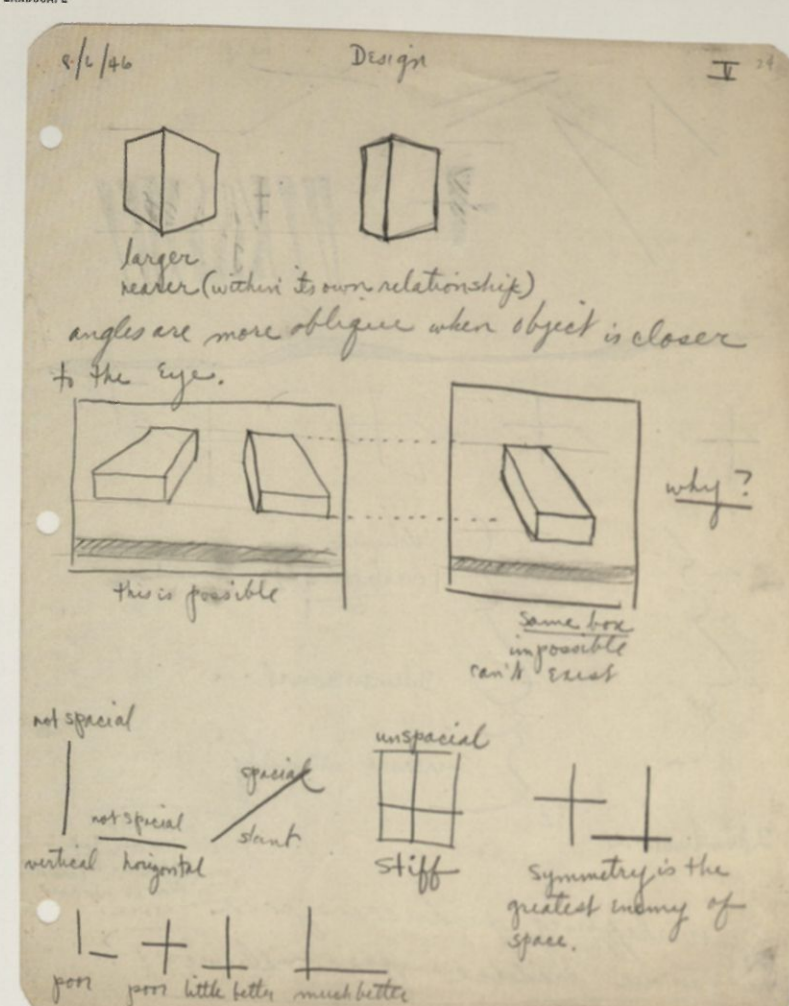 LANDSCAPE
8/6/46 Design V 24
larger
nearer (within its own relationship)
angles are more oblique when object is closer
to the eye.
why?
this is possible
same box
impossible
can't exist
not spacial
vertical
not spacial
horizontal
spacial
slant
unspacial
stiff
symmetry is the
greatest enemy of
space.
poor poor little better much better